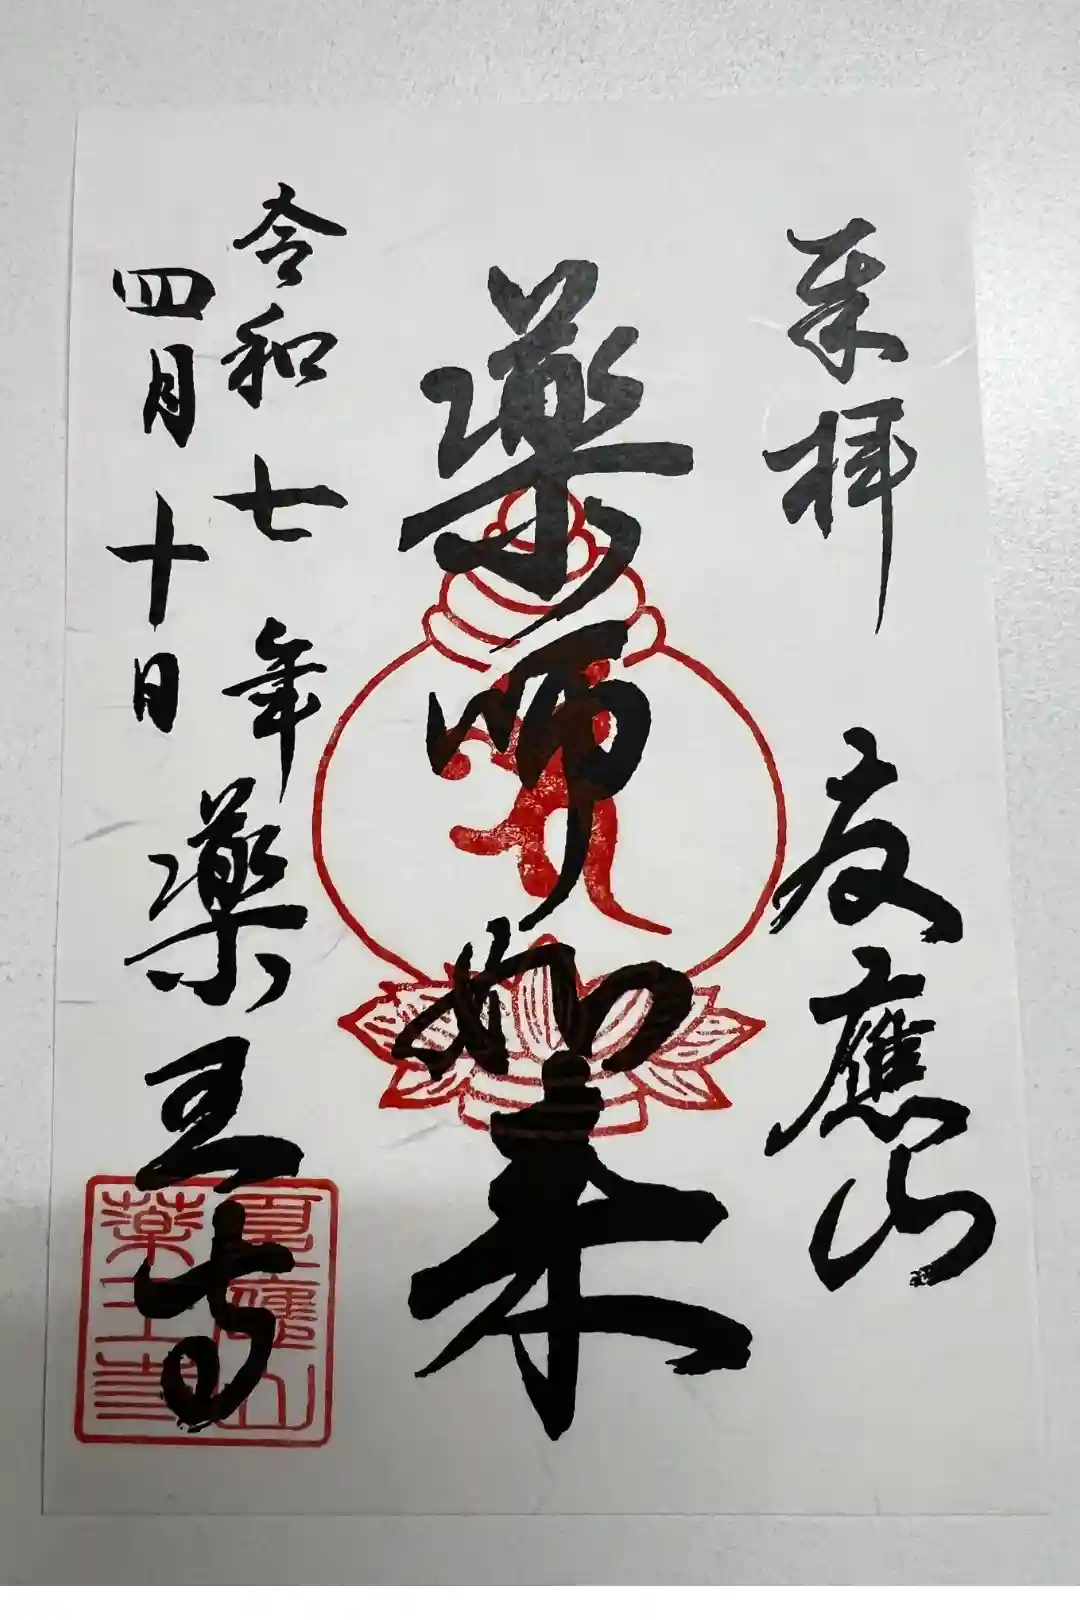 奉拝
夏應山
薬師如来
令和七年
四月十日
薬王寺
夏應山
薬王寺